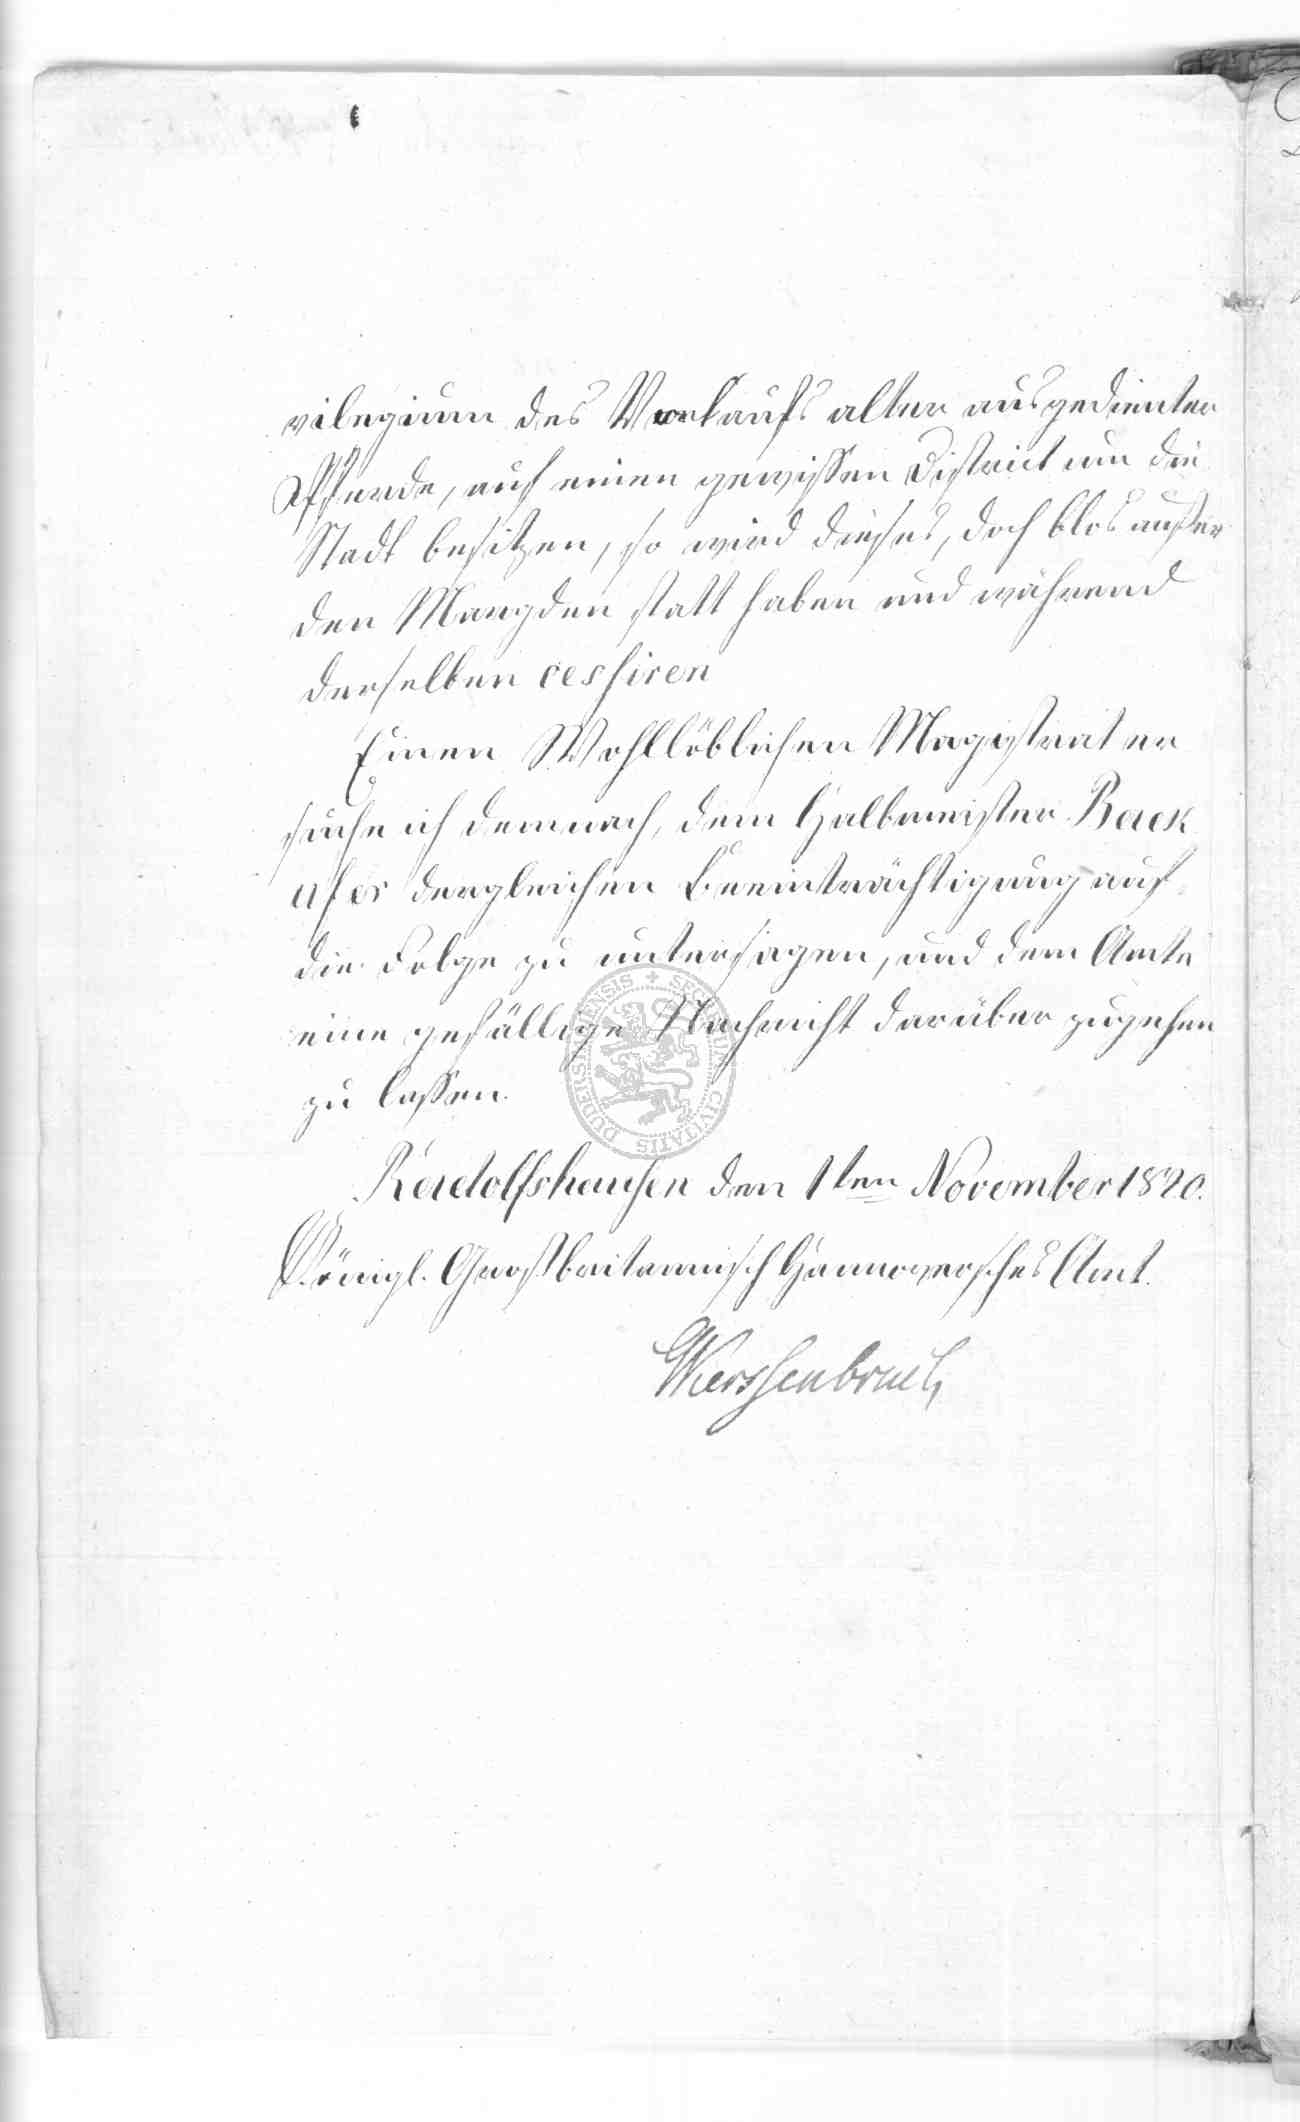 vilegium des Vorkaufs alter ausgedienter
Pferde, auf einen gewissen District um die
Stadt besitzen, so wird dieses, doch blos außer
den Margden statt haben und während
derselben cessiren
Einen Wohllöblichen Magistrat er
suche ich demnach, dem Halbmeister
dergleichen Beeinträchtigung auf
die Folge zu untersagen, und dem Amte
eine gefällige Nachricht darüber zugehen
zu lassen.
Radolfshausen den 1ten November 1820.
Königl. Großbritannisch Hannoversches Amt.
Wersenbruch
SECRETUM CIVITATIS DUDERSTADENSIS